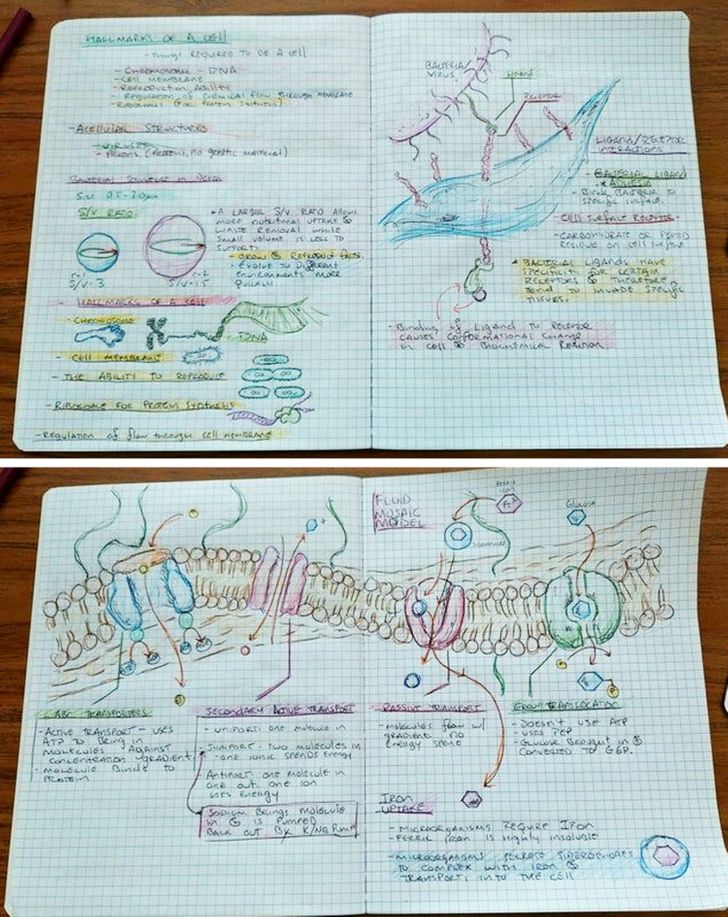 HALLMARKS OF A CELL
- THINGS REQUIRED TO BE A CELL
- CHROMOSOME - DNA
- CELL MEMBRANE
- REPRODUCTION ABILITY
- REGULATION OF CHEMICAL FLOW THROUGH MEMBRANE
- RIBOSOMES (FOR PROTEIN SYNTHESIS)
- ACELLULAR STRUCTURES
- VIRUSES
- PRIONS (PROTEINS, NO GENETIC MATERIAL)
BACTERIAL STRUCTURE IN DEPTH
S/V RATIO
r=1
S/V=3
r=2
S/V=1.5
A LARGER S/V RATIO ALLOWS
MORE NUTRITIONAL UPTAKE &
WASTE REMOVAL WHILE
SMALL VOLUME IS LESS TO
SUPPORT
- GROW & REPRODUCE FASTER
- EVOLVE TO DIFFERENT
ENVIRONMENTS MORE
QUICKLY
- HALLMARKS OF A CELL
- CHROMOSOME
DNA
CELL MEMBRANE
- THE ABILITY TO REPRODUCE
- RIBOSOME FOR PROTEIN SYNTHESIS
- REGULATION OF FLOW THROUGH CELL MEMBRANE
BACTERIA/
VIRUS
LIGAND
RECEPTOR
LIGAND/RECEPTOR
INTERACTIONS
- BACTERIAL LIGAND
ADHESIN
- BINDS BACTERIA TO
SPECIFIC SURFACE
- CELL SURFACE RECEPTOR
- CARBOHYDRATE OR
RESIDUE ON CELL SURFACE
BACTERIAL LIGANDS HAVE
SPECIFICITY FOR CERTAIN
RECEPTORS & THEREFORE
TEND TO INVADE SPECIFIC
TISSUES.
- BINDING OF LIGAND TO RECEPTOR
CAUSES CONFORMATIONAL CHANGE
IN CELL & BIOCHEMICAL REACTION
FLUID
MOSAIC
MODEL
Fe
Glucose
ATP
ATP
P
P
ABC TRANSPORTERS
- ACTIVE TRANSPORT - USES
ATP TO BRING IN
MOLECULES AGAINST
CONCENTRATION GRADIENT
- MOLECULE BINDS TO
PROTEIN
SECONDARY ACTIVE TRANSPORT
- UNIPORT: ONE MOLECULE IN
- SYMPORT: TWO MOLECULES IN
- ONE IONIC SPENDS ENERGY
- ANTIPORT: ONE MOLECULE IN
ONE OUT. ONE ION
USES ENERGY
SODIUM BRINGS MOLECULE
IN & IS PUMPED
BACK OUT BY K/NA PUMP
PASSIVE TRANSPORT
- MOLECULES FLOW W/
GRADIENT. NO
ENERGY SPEND
GROUP TRANSLOCATION
- DOESN'T USE ATP
- USES PEP
- GLUCOSE BROUGHT IN &
CONVERTED TO G6P.
IRON
UPTAKE
- MICROORGANISMS REQUIRE IRON
- FERRIC IRON IS HIGHLY INSOLUBLE
- MICROORGANISMS SECRETE SIDEROPHORES
TO COMPLEX WITH IRON &
TRANSPORT INTO THE CELL